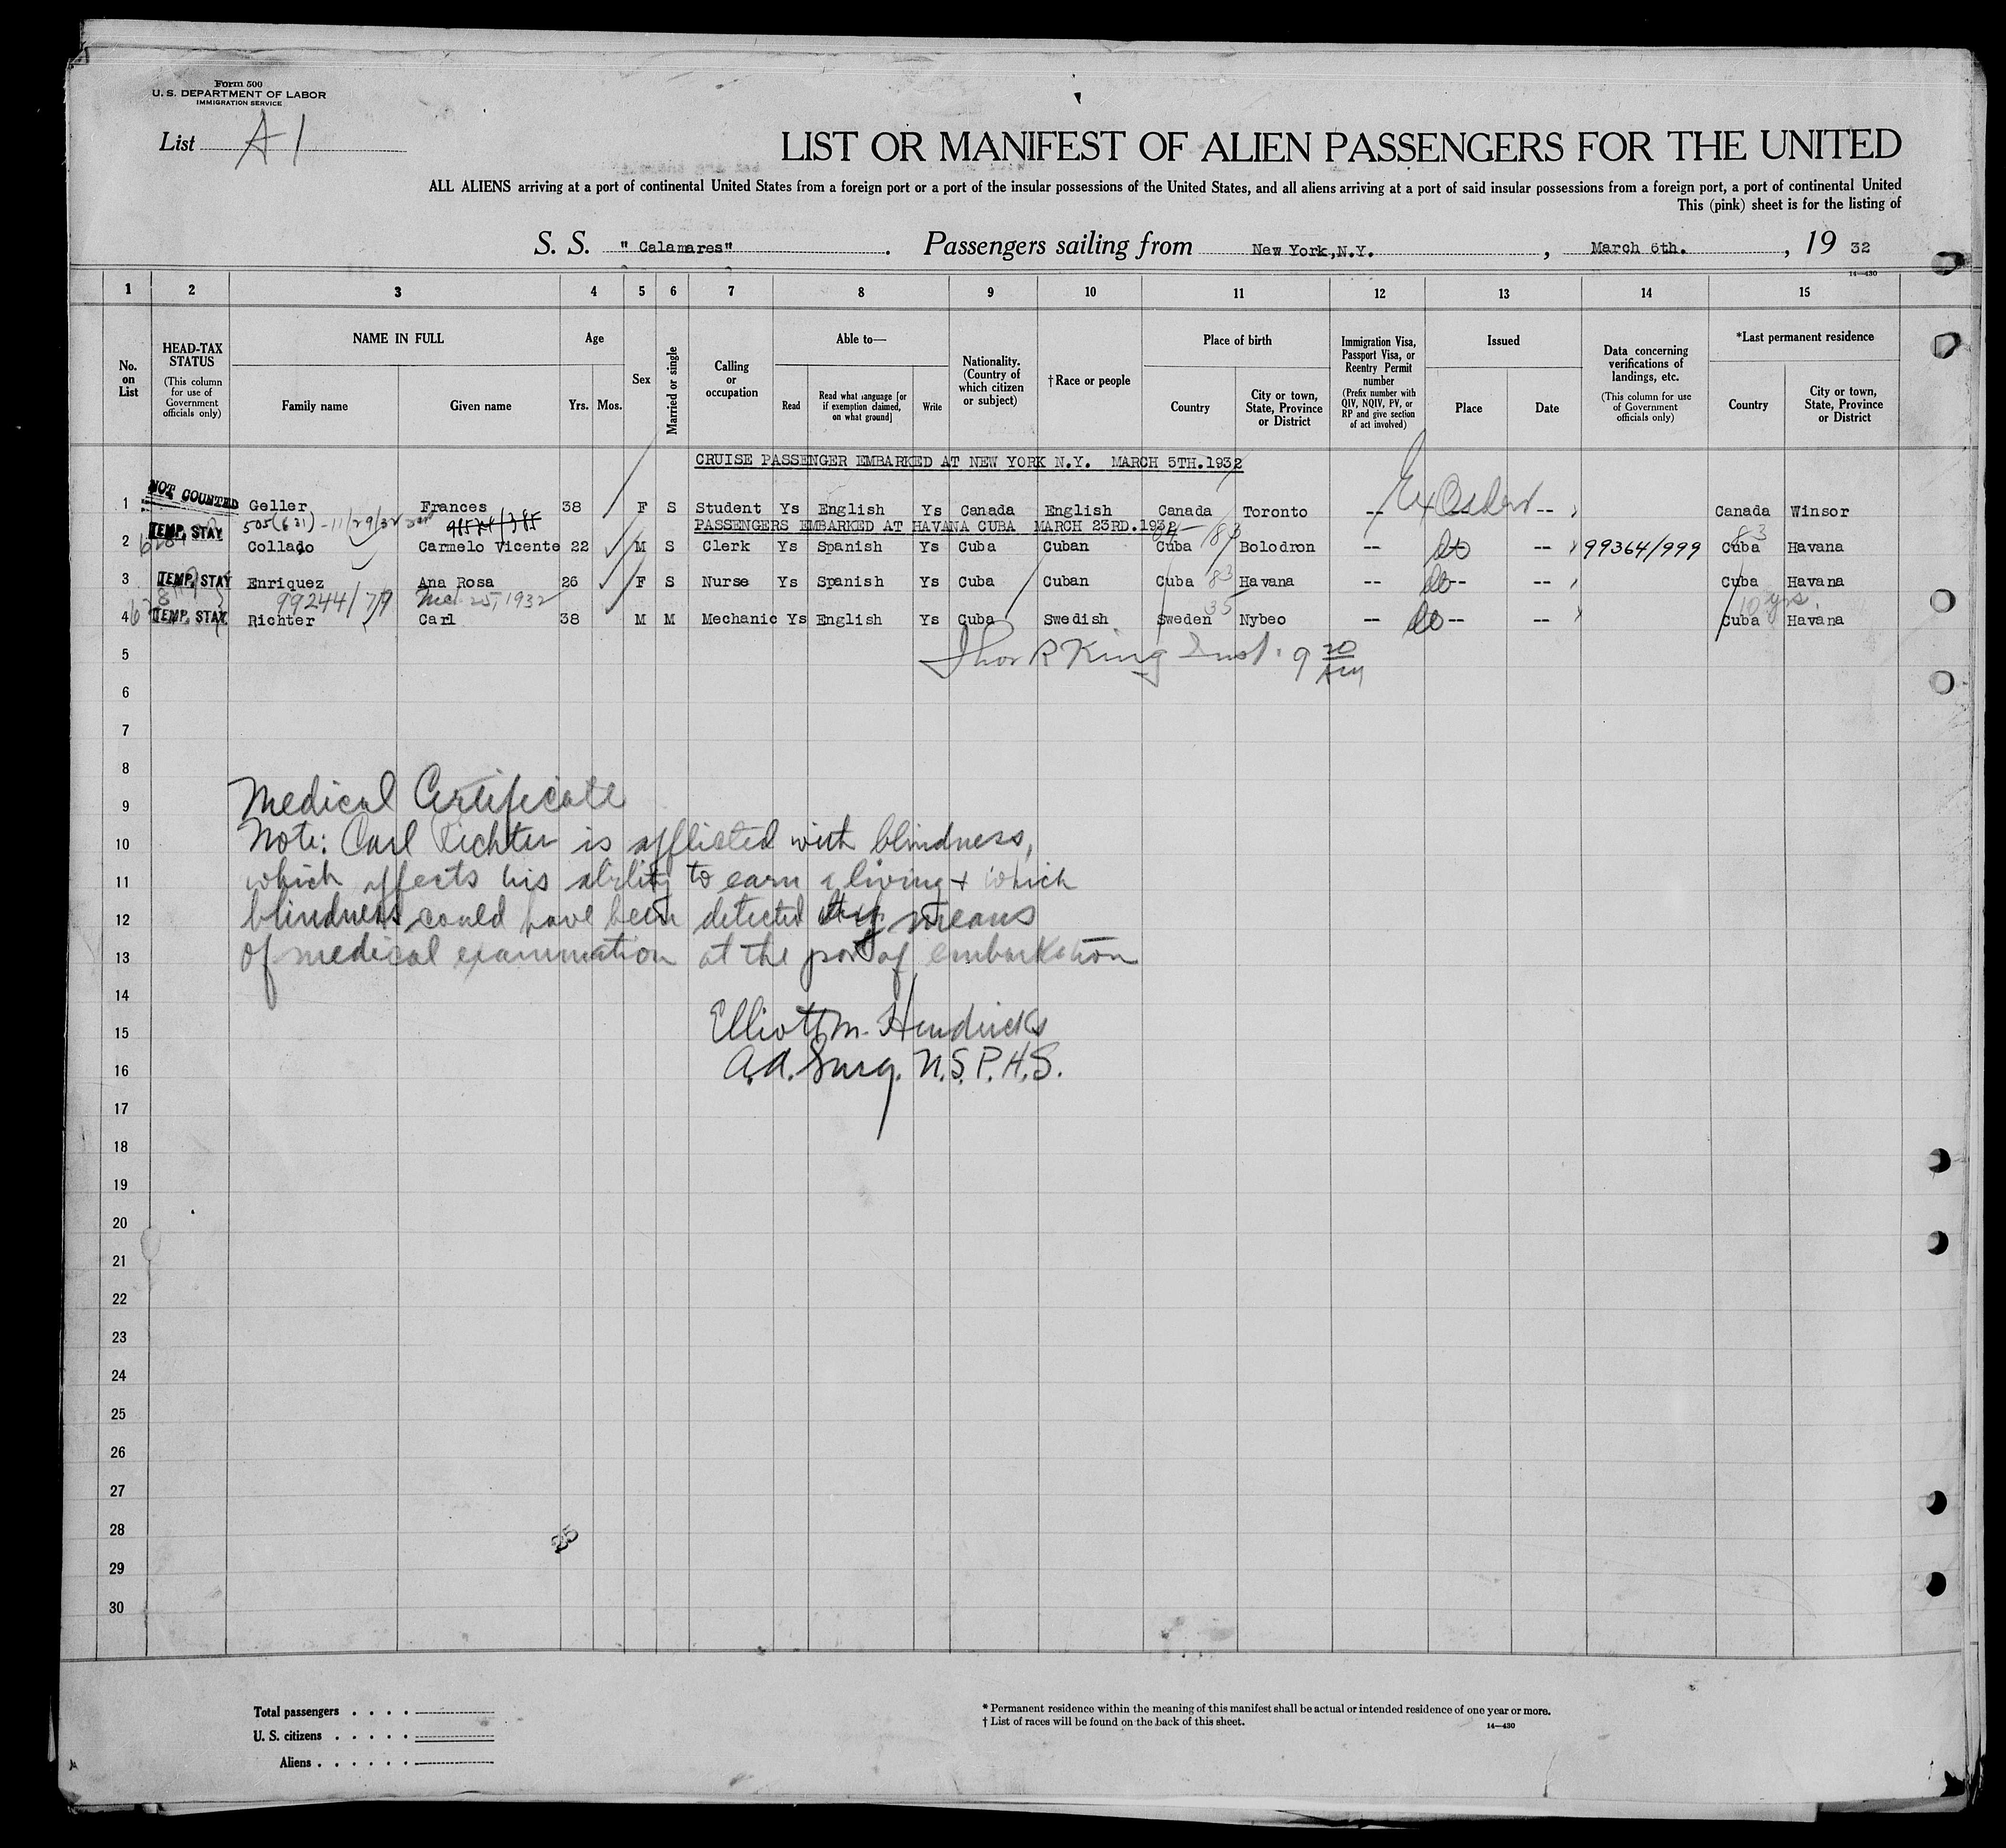 Form 500
U. S. DEPARTMENT OF LABOR
IMMIGRATION SERVICE
List A 1
LIST OR MANIFEST OF ALIEN PASSENGERS FOR THE UNITED
ALL ALIENS arriving at a port of continental United States from a foreign port or a port of the insular possessions of the United States, and all aliens arriving at a port of said insular possessions from a foreign port, a port of continental United
This (pink) sheet is for the listing of
S. S. "Calamares". Passengers sailing from New York, N.Y., March 6th., 1932
14—430
1 2 3 4 5 6 7 8 9 10 11 12 13 14 15
No. on List
HEAD-TAX STATUS (This column for use of Government officials only)
NAME IN FULL
Family name
Given name
Age
Yrs. Mos.
Sex
Married or single
Calling or occupation
Able to—
Read
Read what language [or if exemption claimed, on what ground]
Write
Nationality. (Country of which citizen or subject)
†Race or people
Place of birth
Country
City or town, State, Province or District
Immigration Visa, Passport Visa, or Reentry Permit number (Prefix number with QIV, NQIV, PV, or RP and give section of act involved)
Issued
Place
Date
Data concerning verifications of landings, etc. (This column for use of Government officials only)
*Last permanent residence
Country
City or town, State, Province or District
CRUISE PASSENGER EMBARKED AT NEW YORK N.Y. MARCH 5TH.1932
1 NOT COUNTED Geller Frances 38 F S Student Ys English Ys Canada English Canada Toronto -- -- Canada Winsor
505(631) - 11/29/32
PASSENGERS EMBARKED AT HAVANA CUBA MARCH 23RD.1932
83 83
2 TEMP. STAY Collado Carmelo Vicente 22 M S Clerk Ys Spanish Ys Cuba Cuban Cuba Bolodron -- -- 99364/999 Cuba Havana
3 TEMP. STAY Enriquez Ana Rosa 26 F S Nurse Ys Spanish Ys Cuba Cuban Cuba 83 Havana -- -- -- Cuba Havana
99244/79 Mar 25, 1932 35 10 yrs.
4 TEMP. STAY Richter Carl 38 M M Mechanic Ys English Ys Cuba Swedish Sweden Nybeo -- -- -- Cuba Havana
5 Thos R King Inst. 9 30 AM
6
7
8
9 Medical Certificate
10 Note: Carl Richter is afflicted with blindness,
11 which affects his ability to earn a living + which
12 blindness could have been detected by means
13 of medical examination at the port of embarkation
14
15 Elliott M. Hendricks
16 A.A. Surg. U.S.P.H.S.
17
18
19
20
21
22
23
24
25
26
27
28 25
29
30
Total passengers . . . .
U. S. citizens . . . . .
Aliens . . . . . .
* Permanent residence within the meaning of this manifest shall be actual or intended residence of one year or more.
† List of races will be found on the back of this sheet.
14—430